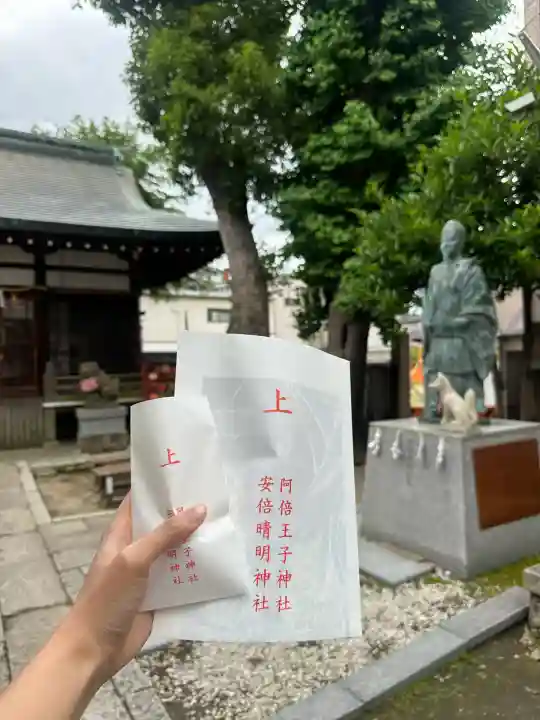 上
阿倍王子神社
安倍晴明神社
上
子神社
明神社